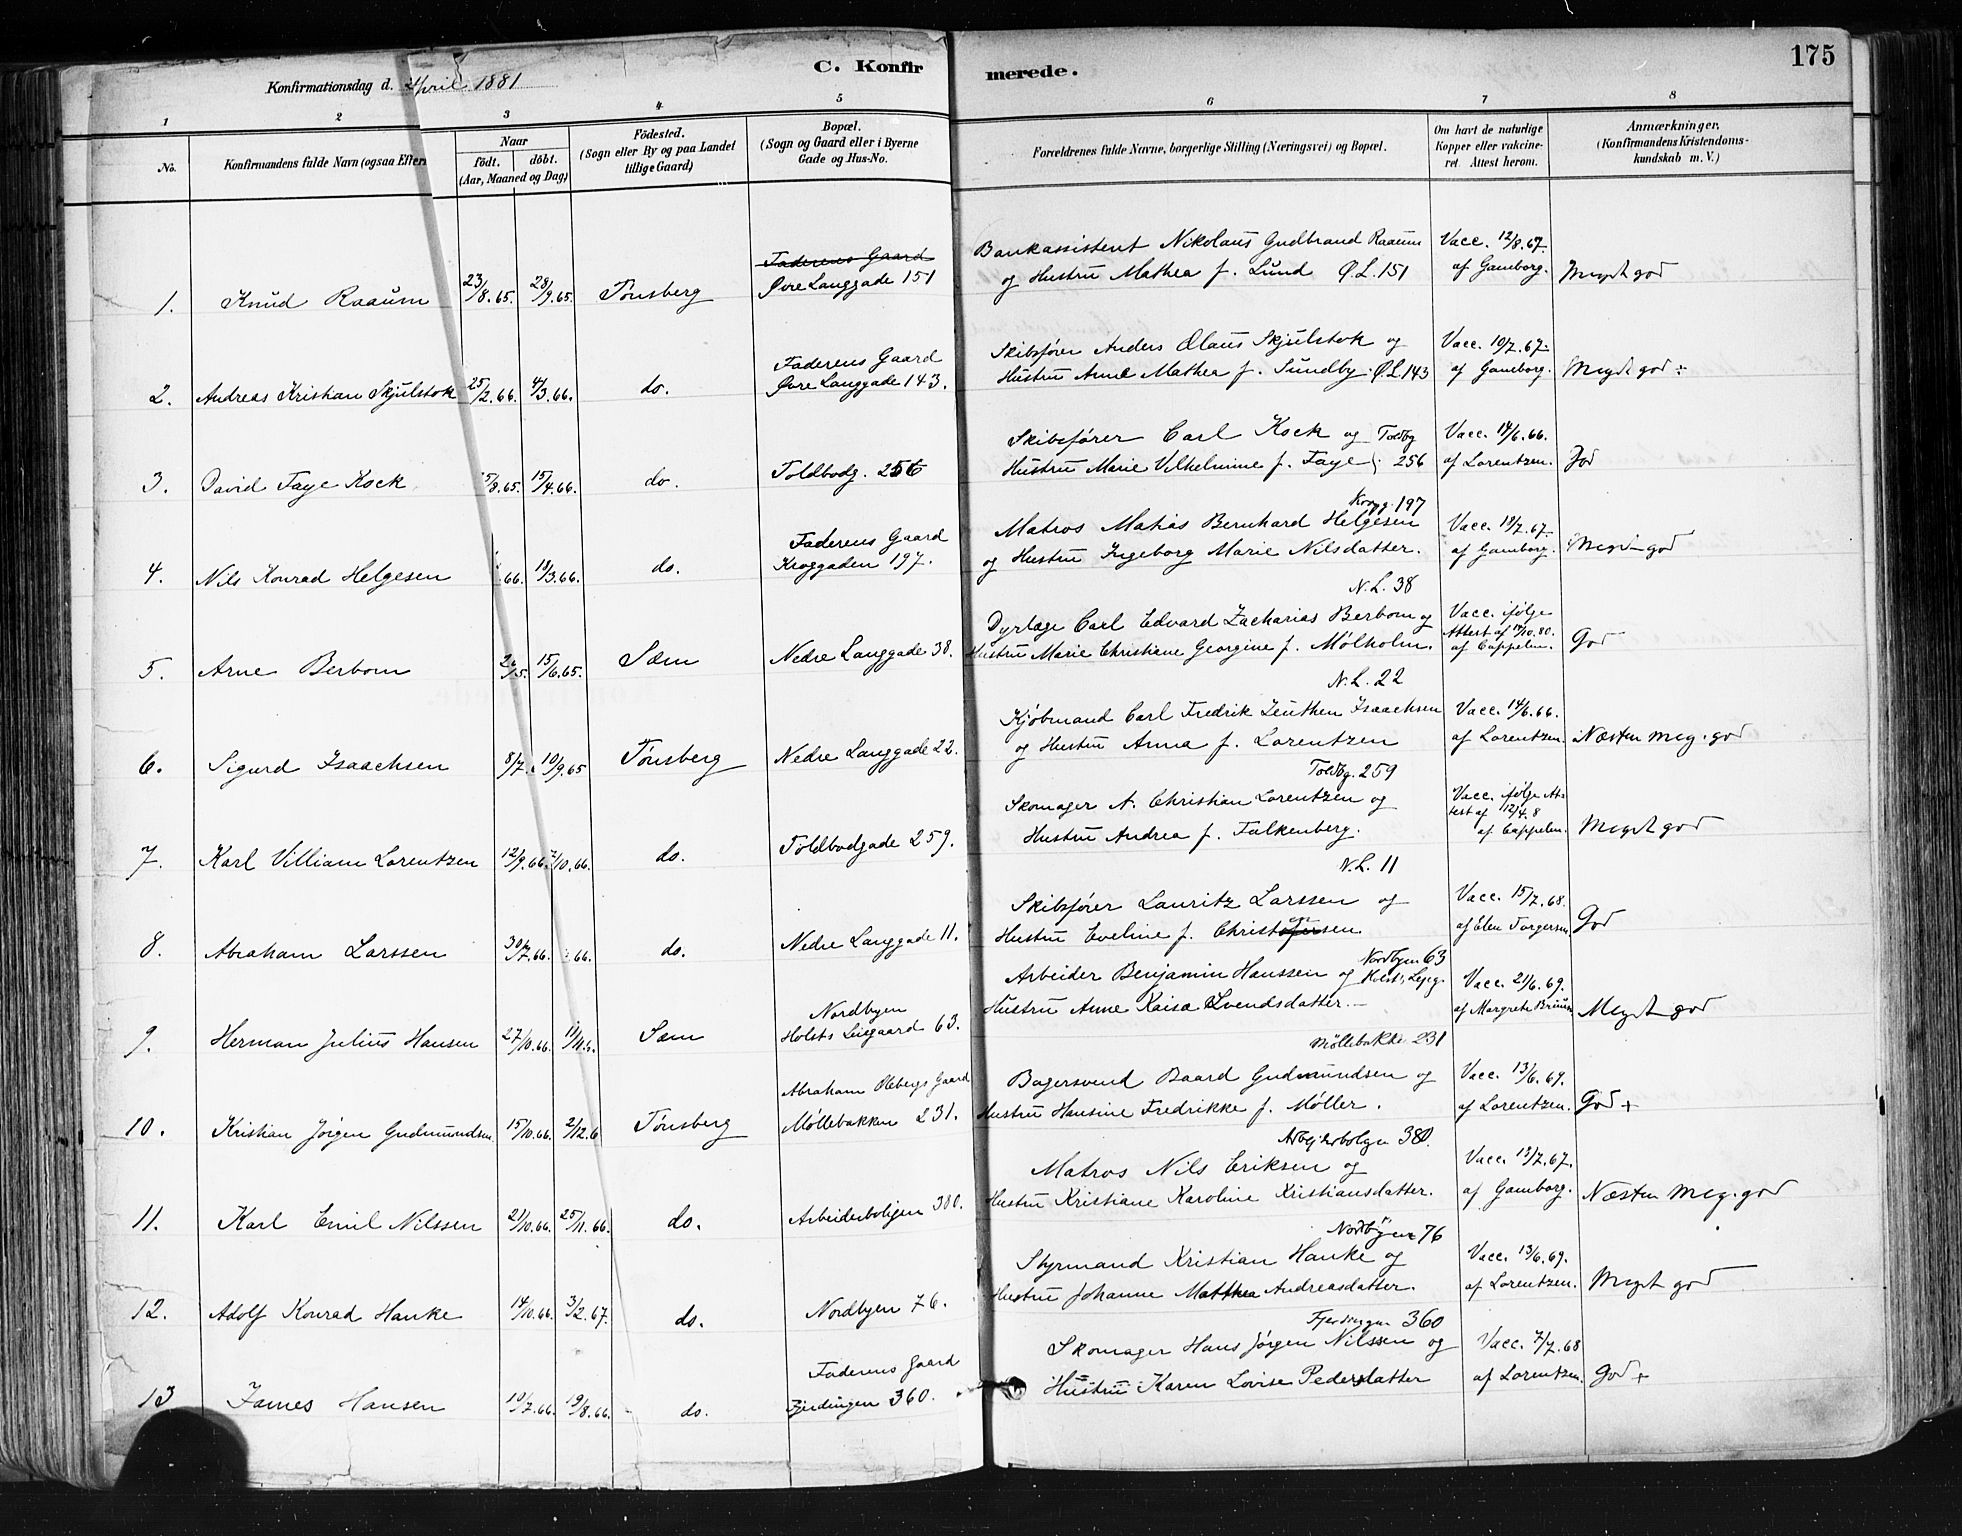 175
C. Konfirmerede.
Konfirmationsdag d. April 1881
1 2 3 4 5 6 7 8
No.
Konfirmandens fulde Navn (ogsaa Eftern
Naar
født. døbt.
(Aar, Maaned og Dag)
Fødested.
(Sogn eller By og paa Landet
tillige Gaard)
Bopæl.
(Sogn og Gaard eller i Byerne
Gade og Hus-No.
Forældrenes fulde Navne, borgerlige Stilling (Næringsvei) og Bopæl.
Om havt de naturlige
Kopper eller vakcine-
ret. Attest herom.
Anmærkninger.
(Konfirmandens Kristendoms-
kundskab m. V.)
1. Knud Raaum 23/8.65. 28/9.65. Tønsberg
Faderens Gaard
Øvre Langgade 151
Bankassistent Nikolaus Gudbrand Raaum
og Hustru Mathea f. Lund Ø.L.151
Vacc. 12/8.67.
af Gamborg.
Meget god
2. Andreas Kristian Skjulstok 25/2.66. 4/3.66. do.
Faderens Gaard
Øvre Langgade 143.
Skibsfører Anders Olaus Skjulstok og
Hustru Anne Mathea f. Sundby. Ø.L.143
Vacc. 10/7.67.
af Gamborg.
Meget god ÷
3. David Faye Kock 5/8.65. 15/4.66. do.
Toldbodg. 256
Skibsfører Carl Kock og Toldbg
Hustru Marie Vilhelmine f. Faye 256
Vacc. 14/6.66.
af Lorentzen.
God
4. Nils Konrad Helgesen 66. 18/3.66. do.
Faderens Gaard
Kroggaden 197.
Krogg. 197
Matros Matias Bernhard Helgesen
og Hustru Ingeborg Marie Nilsdatter.
Vacc. 19/7.67.
af Gamborg.
Meget god
5. Arne Berbom 15/6.65. Sæm
Nedre Langgade 38.
N.L. 38
Dyrlæge Carl Edvard Zacharias Berbom og
Hustru Marie Christiane Georgine f. Mølholm.
Vacc. ifølge
Attest af 14/10.80.
af Cappelen.
God
6. Sigurd Isaachsen 8/7. 10/9.65 Tønsberg
Nedre Langgade 22.
N.L. 22
Kjøbmand Carl Fredrik Zeuthen Isaachsen
og Hustru Anna f. Lorentzen
Vacc. 14/6.66.
af Lorentzen.
Næsten meg. god
7. Karl Villiam Lorentzen 12/9.66. 7/10.66. do.
Toldbodgade 259.
Toldbg. 259
Skomager A. Christian Lorentzen og
Hustru Andrea f. Falkenberg.
Vacc. ifølge At-
test af 12/4.8
af Cappelen.
Meget god
8. Abraham Larssen 30/7.66. 66. do.
Nedre Langgade 11.
N.L. 11
Skibsfører Lauritz Larssen og
Hustru Eveline f. Christofersen.
Vacc. 15/7.68.
af Elen Torgersen
God
9. Herman Julius Hansen 27/10.66. 11/11.6. Sæm
Nordbyen
Holsts Leiegaard 63.
Nordbyen 63
Arbeider Benjamin Hanssen og Holsts Lejeg.
Hustru Anne Kaisa Svendsdatter.
Vacc. 21/6.69.
af Margrete Bruun
Meget god
10. Kristian Jørgen Gudmundsen 15/10.66. 2/12.6 Tønsberg
Abraham Olebergs Gaard
Møllebakken 231.
Møllebakke 231
Bagersvend Baard Gudmundsen og
Hustru Hansine Fredrikke f. Møller.
Vacc. 13/6.69.
af Lorentzen.
God +
11. Karl Emil Nilssen 21/10.66. 25/11.66. do.
Arbeiderboligen 380.
Arbejderbolgn 380.
Matros Nils Eriksen og
Hustru Kristiane Karoline Kristiansdatter.
Vacc. 13/7.67.
af Gamborg.
Næsten meg. god
12. Adolf Konrad Hanke 14/10.66. 3/2.67. do.
Nordbyen 76.
Nordbyen 76
Styrmand Kristian Hanke og
Hustru Johanne Matthea Andreasdatter.
Vacc. 13/6.69.
af Lorentzen.
Meget god
13 James Hansen 10/7.66. 19/8.66. do.
Faderens Gaard
Fjerdingen 360.
Fjerdingen 360
Skomager Hans Jørgen Nilssen og
Hustru Karen Lovise Pedersdatter
Vacc. 7/7.68
af Lorentzen.
God +